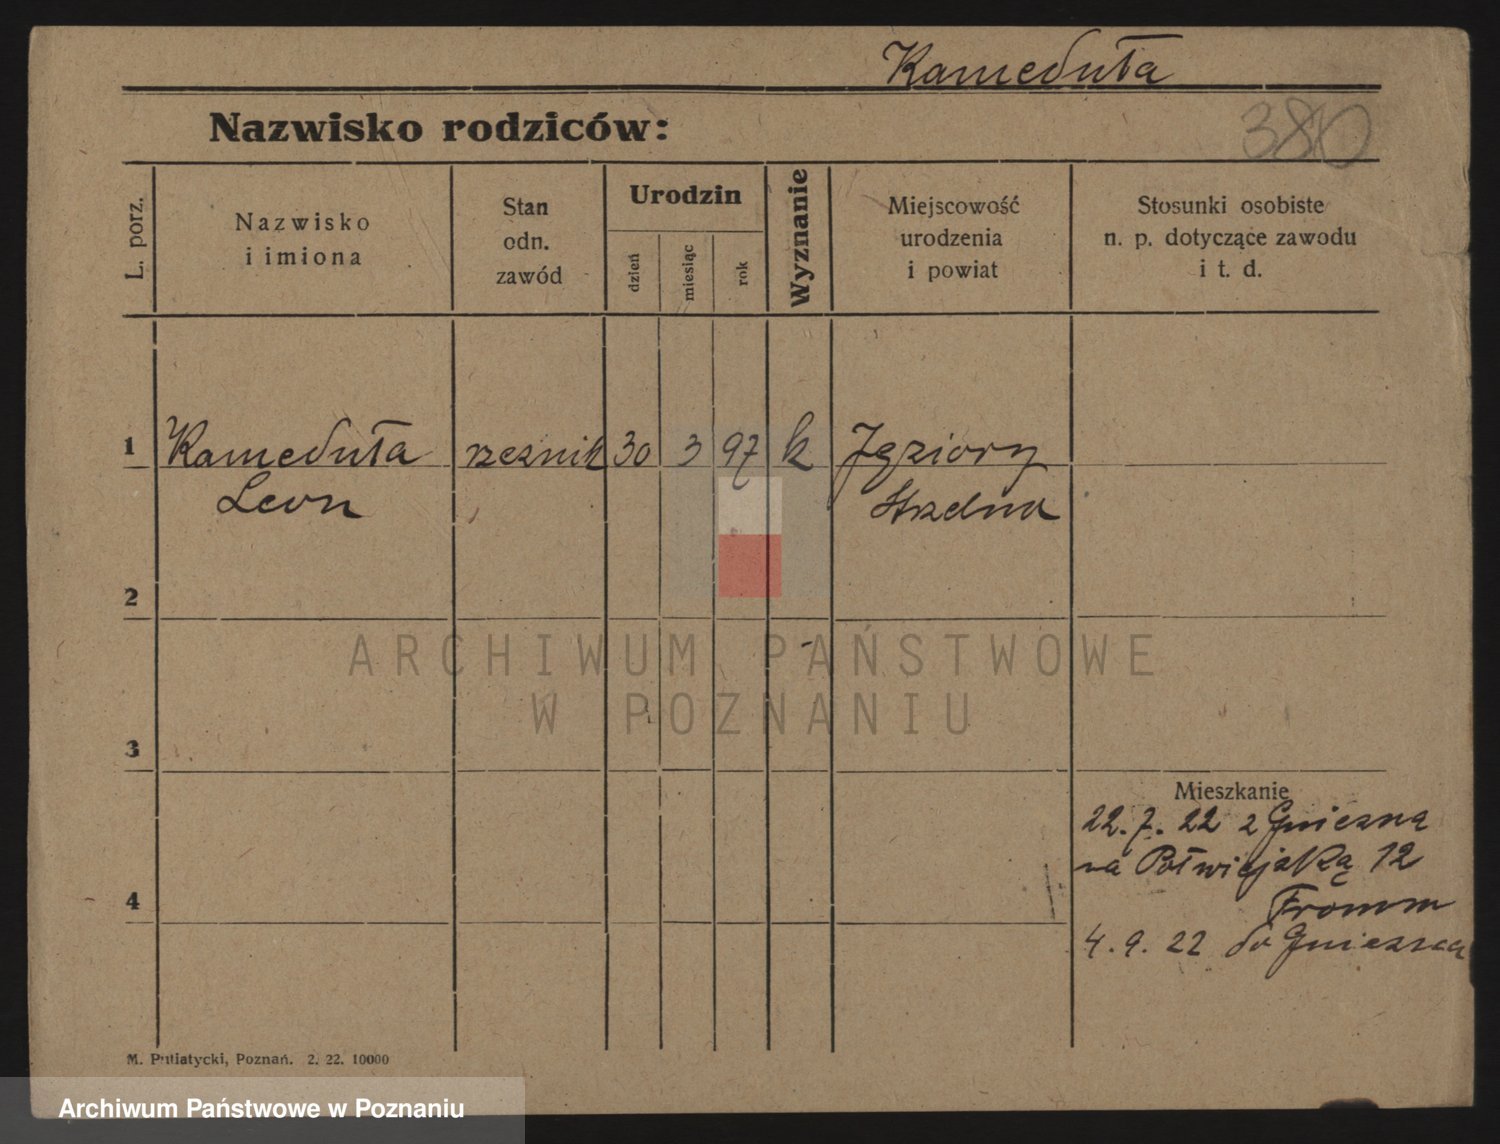 Kameduła
380
Nazwisko rodziców:
L. porz.
Nazwisko
i imiona
Stan
odn.
zawód
Urodzin
dzień
miesiąc
rok
Wyznanie
Miejscowość
urodzenia
i powiat
Stosunki osobiste
n. p. dotyczące zawodu
i t. d.
1 Kameduła rzeznik 30 3 97 k Jeziory
Leon
2
ARCHIWUM PAŃSTWOWE
W POZNANIU
3
Mieszkanie
22. 7. 22 z Gniezna
na Półwiejską 12
Fromm
4
4. 9. 22 do Gniezna
M. Putiatycki, Poznań. 2. 22. 10000
Archiwum Państwowe w Poznaniu